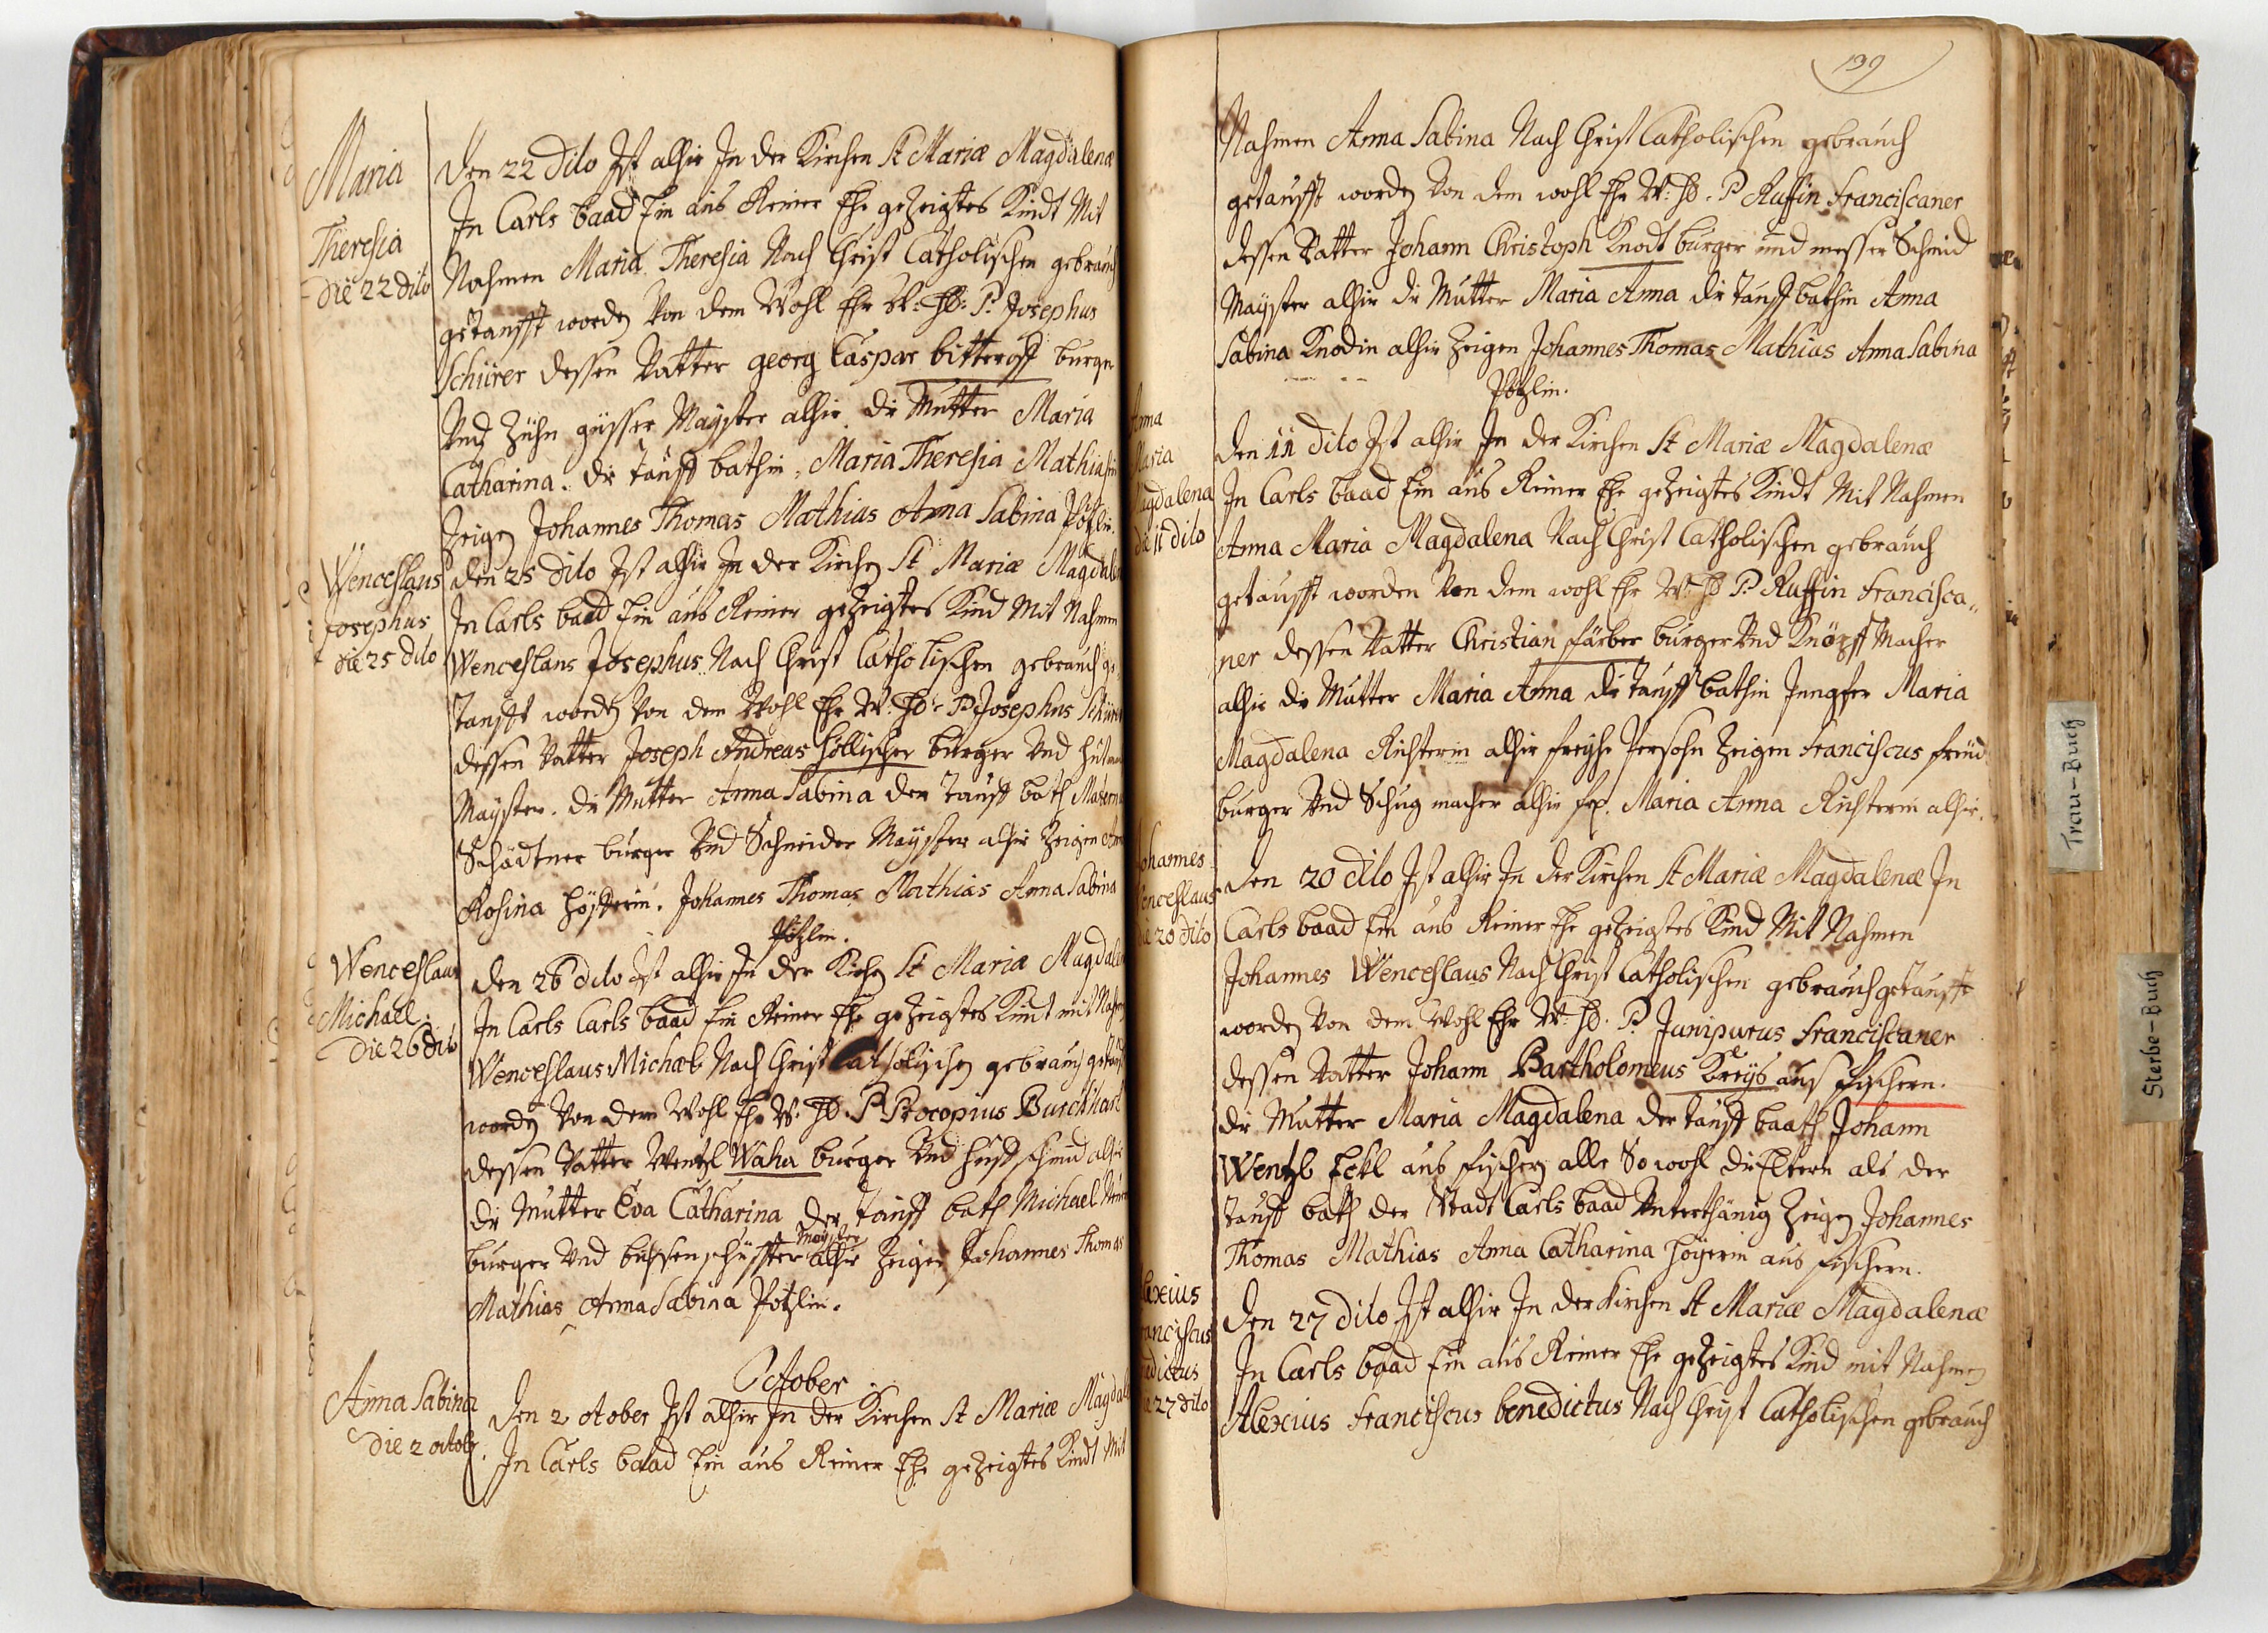 Maria
Theresia
die 22 dito
Den 22 dito Ist alhir In der Kirchen St Mariæ Magdalenæ
In Carls baad Ein aus Reiner Ehe gezeigtes Kindt Mit
Nahmen Maria Theresia Nach Christ Catholischen gebrauch
getaufft worden Von dem Wohl Ehr W: H: P: Josephus
Schürer dessen Vatter georg Caspar bitteroff burger
Vnd Zihn güsser Mayster alhir die Mutter Maria
Catharina. die tauff bathin. Maria Theresia Mathiasin
Zeigen Johannes Thomas Mathias Anna Sabina Pötzlin.
Wenceslaus
Josephus
die 25 dito
den 25 dito Ist alhir In der Kirchen St Mariæ Magdalen
In Carls baad Ein aus Reiner gezeigtes Kind Mit Nahmen
Wenceslaus Josephus Nach Christ Catholischen gebrauch ge
taufft worden Von dem Wohl Ehr W: H: P: Josephus Schürer
dessen Vatter Joseph Andreas Höllischer burger Vnd Hut
Mayster. die Mutter Anna Sabina der tauff bath
Schädtner burger Vnd Schneider Mayster alhir Zeigen
Rosina. Johannes Thomas Mathias Anna Sabina
Pötzlin.
Wenceslaus
Michael.
die 26 dito
den 26 dito Ist alhir In der Kirchen St Mariæ Magdalen
In Carls Carls baad Ein Reiner Ehe gezeigtes Kindt mit Nahmen
Wenceslaus Michael Nach Christ Catholischen gebrauch getauff
worden Von dem Wohl Ehr W: H: P: Procopius Burckhart
dessen Vatter Wentzl Waha burger Vnd Huffschmid alhir
die Mutter Eva Catharina der tauff bath Michael
Mayster
burger Vnd bichsenschüffter alhir Zeigen Johannes Thomas
Mathias Anna Sabina Pötzlin.
October
Anna Sabina
die 2 octobr.
Den 2 otober Ist alhir In der Kirchen St Mariæ Magdal
In Carls baad Ein aus Reiner Ehe gezeigtes Kindt Mit
199
Nahmen Anna Sabina Nach Christ Catholischen gebrauch
getaufft worden Von dem wohl Ehr W: H: P Ruffin Franciscaner
dessen Vatter Johann Christoph Knodt burger und messer Schmid
Mayster alhir die Mutter Maria Anna die tauff bathin Anna
Sabina Knodin alhir Zeigen Johannes Thomas Mathias Anna Sabina
Pötzlin.
Anna
Maria
Magdalena
die 11 dito
Den 11 dito Ist alhir In der Kirchen St Mariæ Magdalenæ
In Carls baad Ein aus Reiner Ehe gezeigtes Kindt Mit Nahmen
Anna Maria Magdalena Nach Christ Catholischen gebrauch
getaufft worden Von dem wohl Ehr W: H: P: Ruffin Francisca„
ner dessen Vatter Christian färber burger Vnd Knöpff Macher
alhir die Mutter Maria Anna die tauff bathin Jungfer Maria
Magdalena Richterin alhir freyhe Persohn Zeigen Franciscus
burger Vnd Schug macher alhir. Maria Anna Richterin alhir.
Johannes
Wenceslaus
die 20 dito
Den 20 dito Ist alhir In der Kirchen St Mariæ Magdalenæ In
Carls baad Ein aus Reiner Ehe gezeigtes Kind Mit Nahmen
Johannes Wenceslaus Nach Christ Catholischen gebrauch getaufft
worden Von dem Wohl Ehr W: H: P: Junipurus Franciscaner
dessen Vatter Johann Bartholomeus Kreys aus Fischern.
die Mutter Maria Magdalena der tauff baath Johann
Wentzl Eckl aus fischern alle So wohl die Eltern als der
tauff bath der Stadt Carls baad Vnterthänig Zeigen Johannes
Thomas Mathias Anna Catharina Höyerin aus fischern.
lexius
ranciscus
edictus
27 dito
Den 27 dito Ist alhir In der Kirchen St Mariæ Magdalenæ
In Carls baad Ein aus Reiner Ehe gezeigtes Kind mit Nahmen
Alexius Franciscus benedictus Nach Christ Catholischen gebrauch
Trau-Buch
Sterbe-Buch